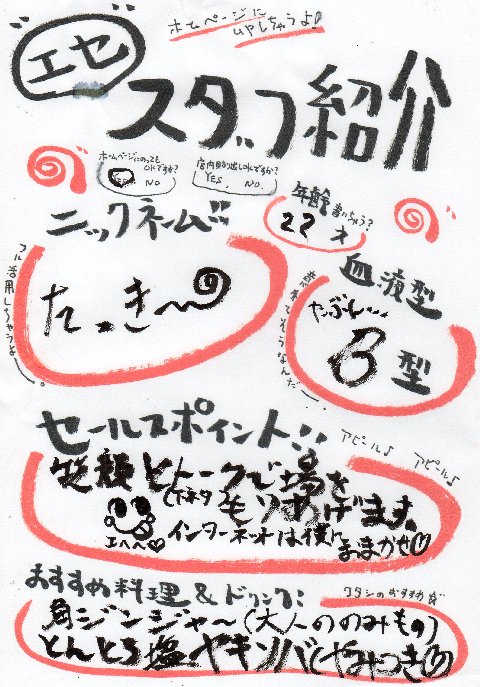 エセ
ホームページに
UPしちゃうよ!
スタッフ紹介
ホームページにのっても
OKですか?
YES . NO
店内貼り出しOKですか?
YES . NO.
年齢書いちゃう?
22才
ニックネーム!!
たっき〜
フル活用しちゃうよ〜。
血液型
たぶん…
B型
セールスポイント!!
アピール♪ アピール♪
笑顔とトークで場を
(下ネタ)
もりあげます。
エヘヘ♡
インターネオは僕に
おまかせ♡
おすすめ料理&ドリンク:
ワタシのおすすめ☆
角ジンジャ〜(大人ののみもの)
とんとろ塩ヤキソバ(やみつき♡)